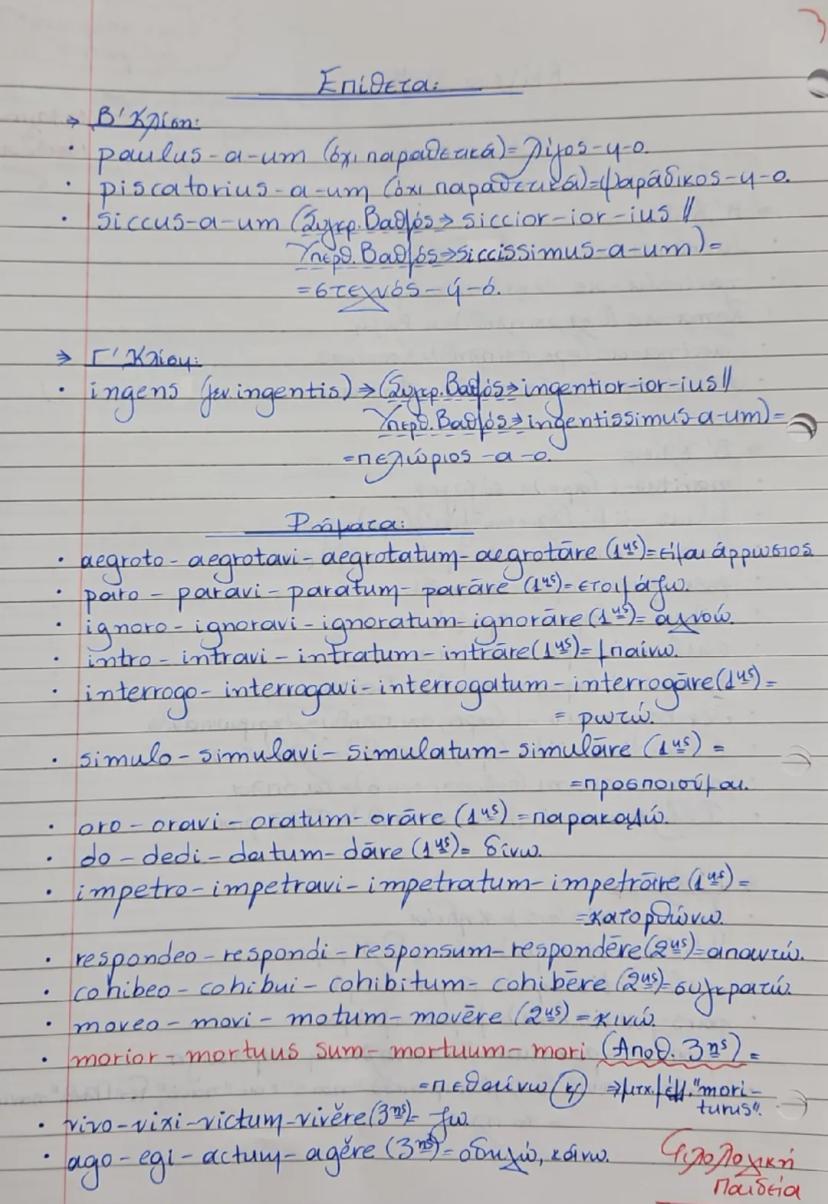 3
Επίθετα:
→ Β' Κλίση:
• paulus-a-um (όχι παραθετικά)= λίγος-η-ο.
• piscatorius-a-um (όχι παραθετικά)=ψαράδικος-η-ο.
• siccus-a-um (Συγκρ. Βαθμός⇒ siccior-ior-ius //
Υπερθ. Βαθμός⇒siccissimus-a-um)=
=στεγνός-ή-ό.
→ Γ' Κλίση:
• ingens (γεν. ingentis)⇒(Συγκρ. Βαθμός⇒ingentior-ior-ius//
Υπερθ. Βαθμός⇒ingentissimus-a-um)=
=πελώριος-α-ο.
Ρήματα:
• aegroto-aegrotavi-aegrotatum-aegrotāre (1ης)=είμαι άρρωστος
• paro-paravi-paratum-parāre (1ης)=ετοιμάζω.
• ignoro-ignoravi-ignoratum-ignorāre (1ης)= αγνοώ.
• intro-intravi-intratum-intrāre(1ης)=μπαίνω.
• interrogo-interrogavi-interrogatum-interrogāre(1ης)=
= ρωτώ.
• simulo-simulavi-simulatum-simulāre (1ης) =
=προσποιούμαι.
• oro-oravi-oratum-orāre (1ης)=παρακαλώ.
• do-dedi-datum-dāre (1ης)= δίνω.
• impetro-impetravi-impetratum-impetrāre (1ης)=
=κατορθώνω.
• respondeo-respondi-responsum-respondēre(2ης)=απαντώ.
• cohibeo-cohibui-cohibitum-cohibēre (2ης)=συγκρατώ.
• moveo-movi-motum-movēre (2ης)=κινώ.
• morior-mortuus sum-mortuum-mori (Αποθ. 3ης)=
=πεθαίνω ⇒μτχ μέλλ."mori-
turus".
• vivo-vixi-victum-vivĕre(3ης)= ζω.
• ago-egi-actum-agĕre (3ης)=οδηγώ, κάνω.
Φιλολογική
Παιδεία